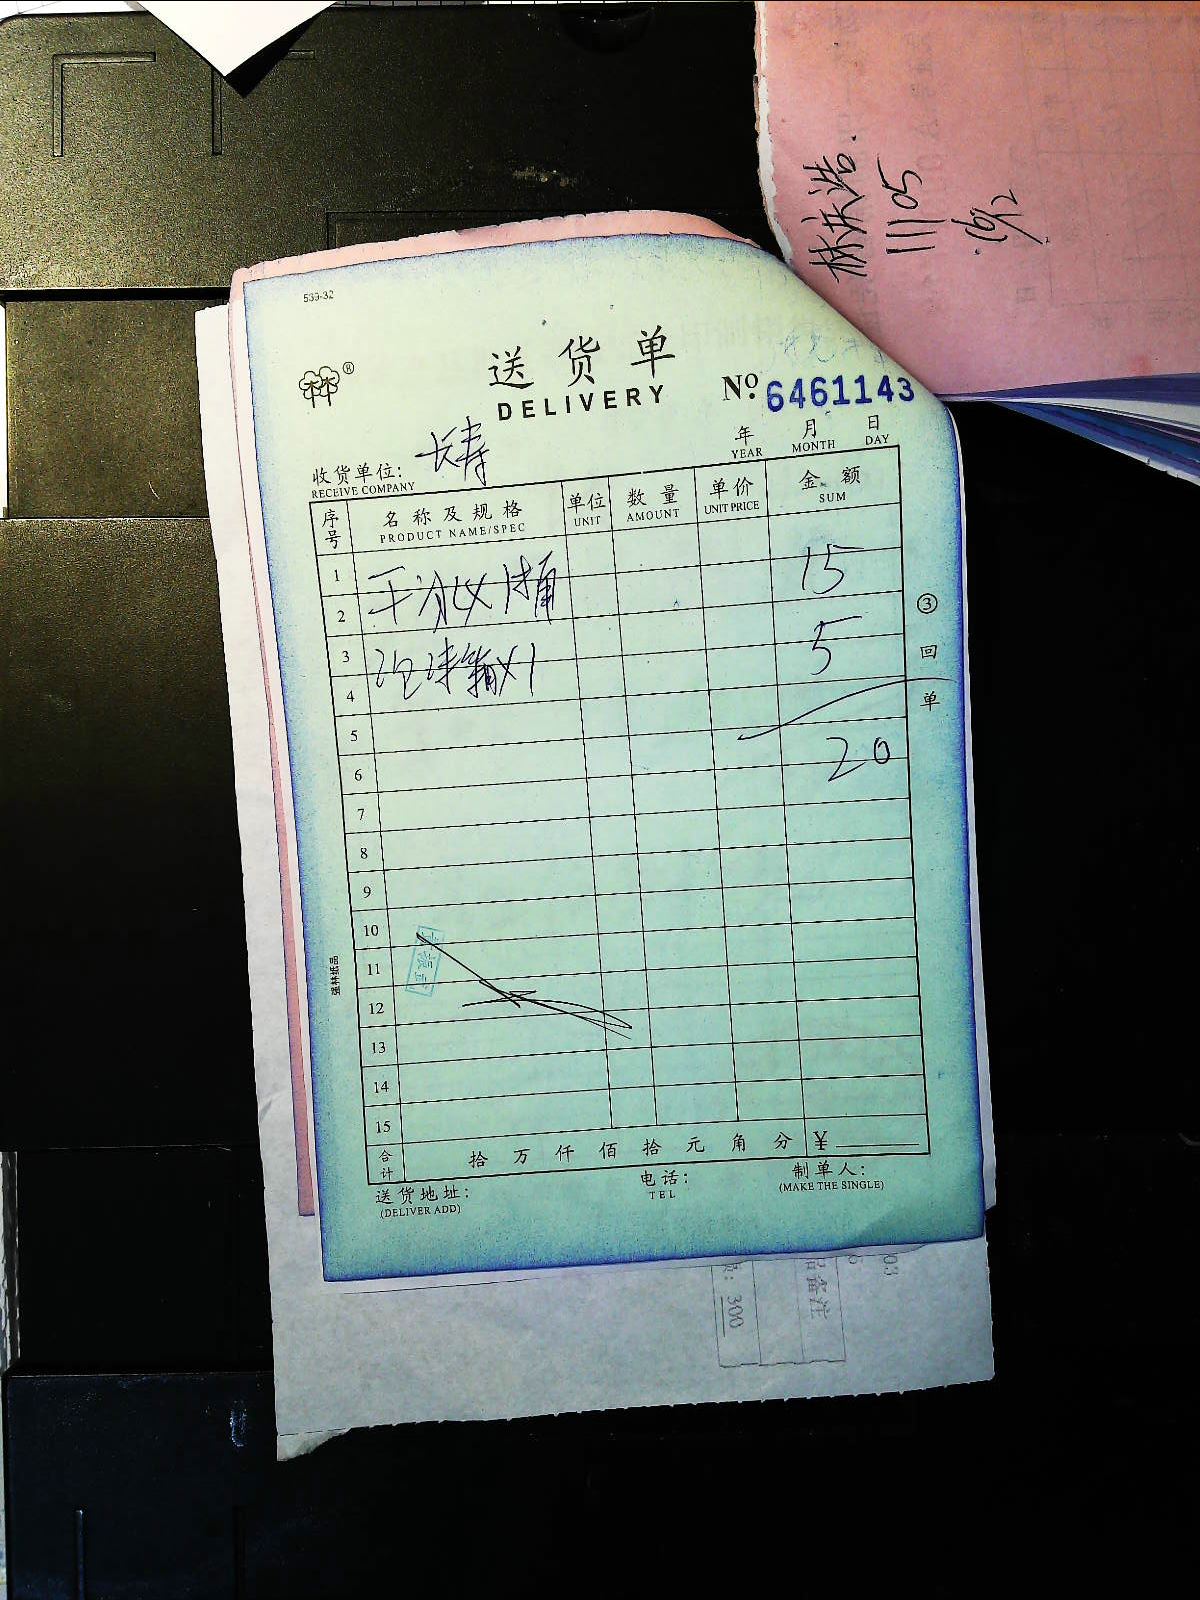 林庆浩.
11105
539-32
林林®
送货单
DELIVERY
No. 6461143
年 月 日
YEAR MONTH DAY
收货单位: 长寿
RECEIVE COMPANY
序号 名称及规格 单位 数量 单价 金额
PRODUCT NAME/SPEC UNIT AMOUNT UNIT PRICE SUM
1
2 15
3
4 5
5
6 20
7
8
9
10
11
12
13
14
15
合计 拾 万 仟 佰 拾 元 角 分 ¥
送货地址: 电话: 制单人:
(DELIVER ADD) TEL (MAKE THE SINGLE)
③回单
强林纸品
: 300
备注
03